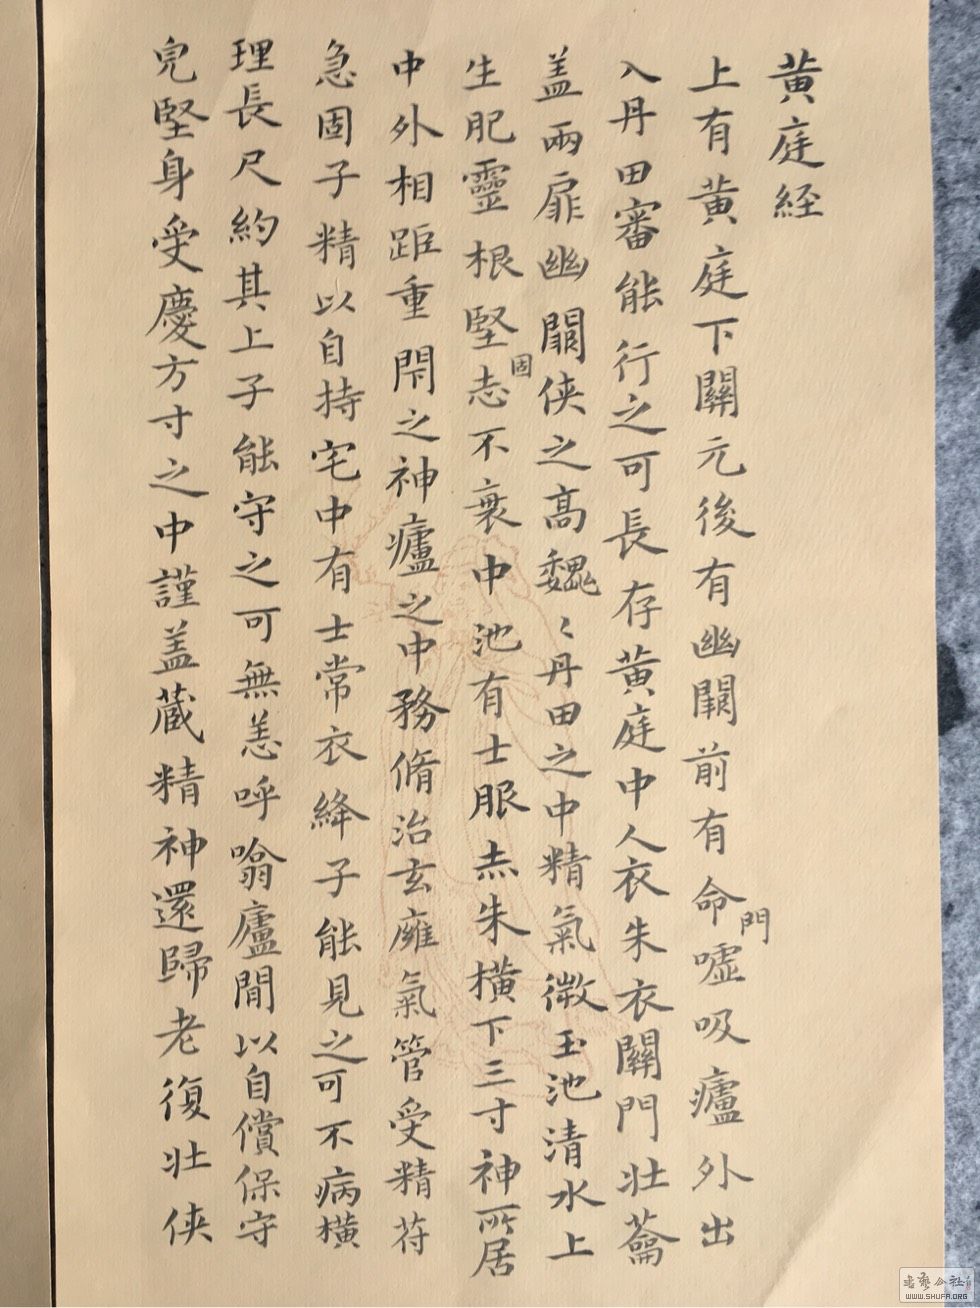 黄庭経
上有黄庭下關元後有幽闕前有命門嘘吸廬外出
入丹田審能行之可長存黄庭中人衣朱衣關門壮蘥
盖兩扉幽闕侠之高魏〻丹田之中精氣微玉池清水上
生肥靈根堅固志不衰中池有士服赤朱横下三寸神所居
中外相距重閇之神廬之中務脩治玄癕氣管受精苻
急固子精以自持宅中有士常衣絳子能見之可不病横
理長尺約其上子能守之可無恙呼噏廬間以自償保守
皃堅身受慶方寸之中謹盖蔵精神還歸老復壮侠
書藝公社
WWW.SHUFA.ORG